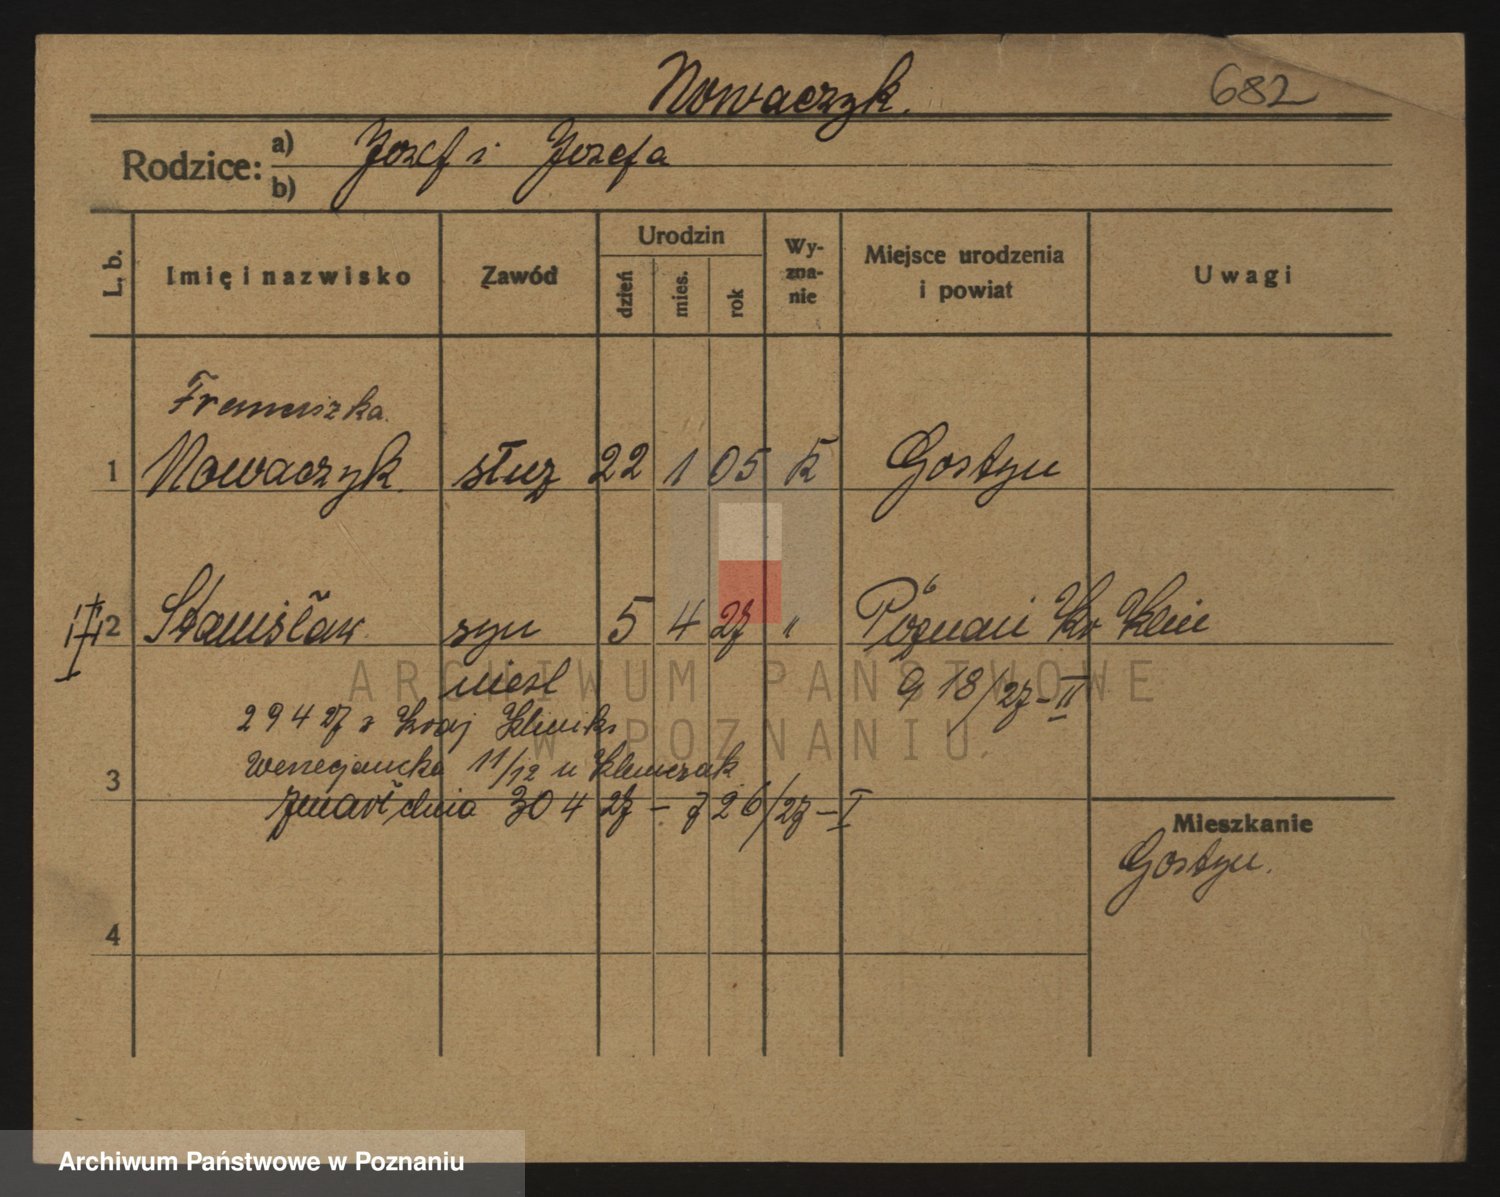 Nowaczyk. 682
Rodzice: a) Jozef i Jozefa
b)
L. b. Imię i nazwisko Zawód Urodzin dzień mies. rok Wy-zna-nie Miejsce urodzenia i powiat Uwagi
Franciszka
1 Nowaczyk. służ 22 1 05 K Gostyn
2 Stanisław syn 5 4 27 " Poznań Kr Klin
nieśl G 18/27-II
29 4 27 z Kraj Kliniki
Wenecjańcka 11/12 u Klimczak
3 zmarł dnia 30 4 27 - 726/27-I
Mieszkanie
Gostyn.
4
ARCHIWUM PAŃSTWOWE
W POZNANIU
Archiwum Państwowe w Poznaniu